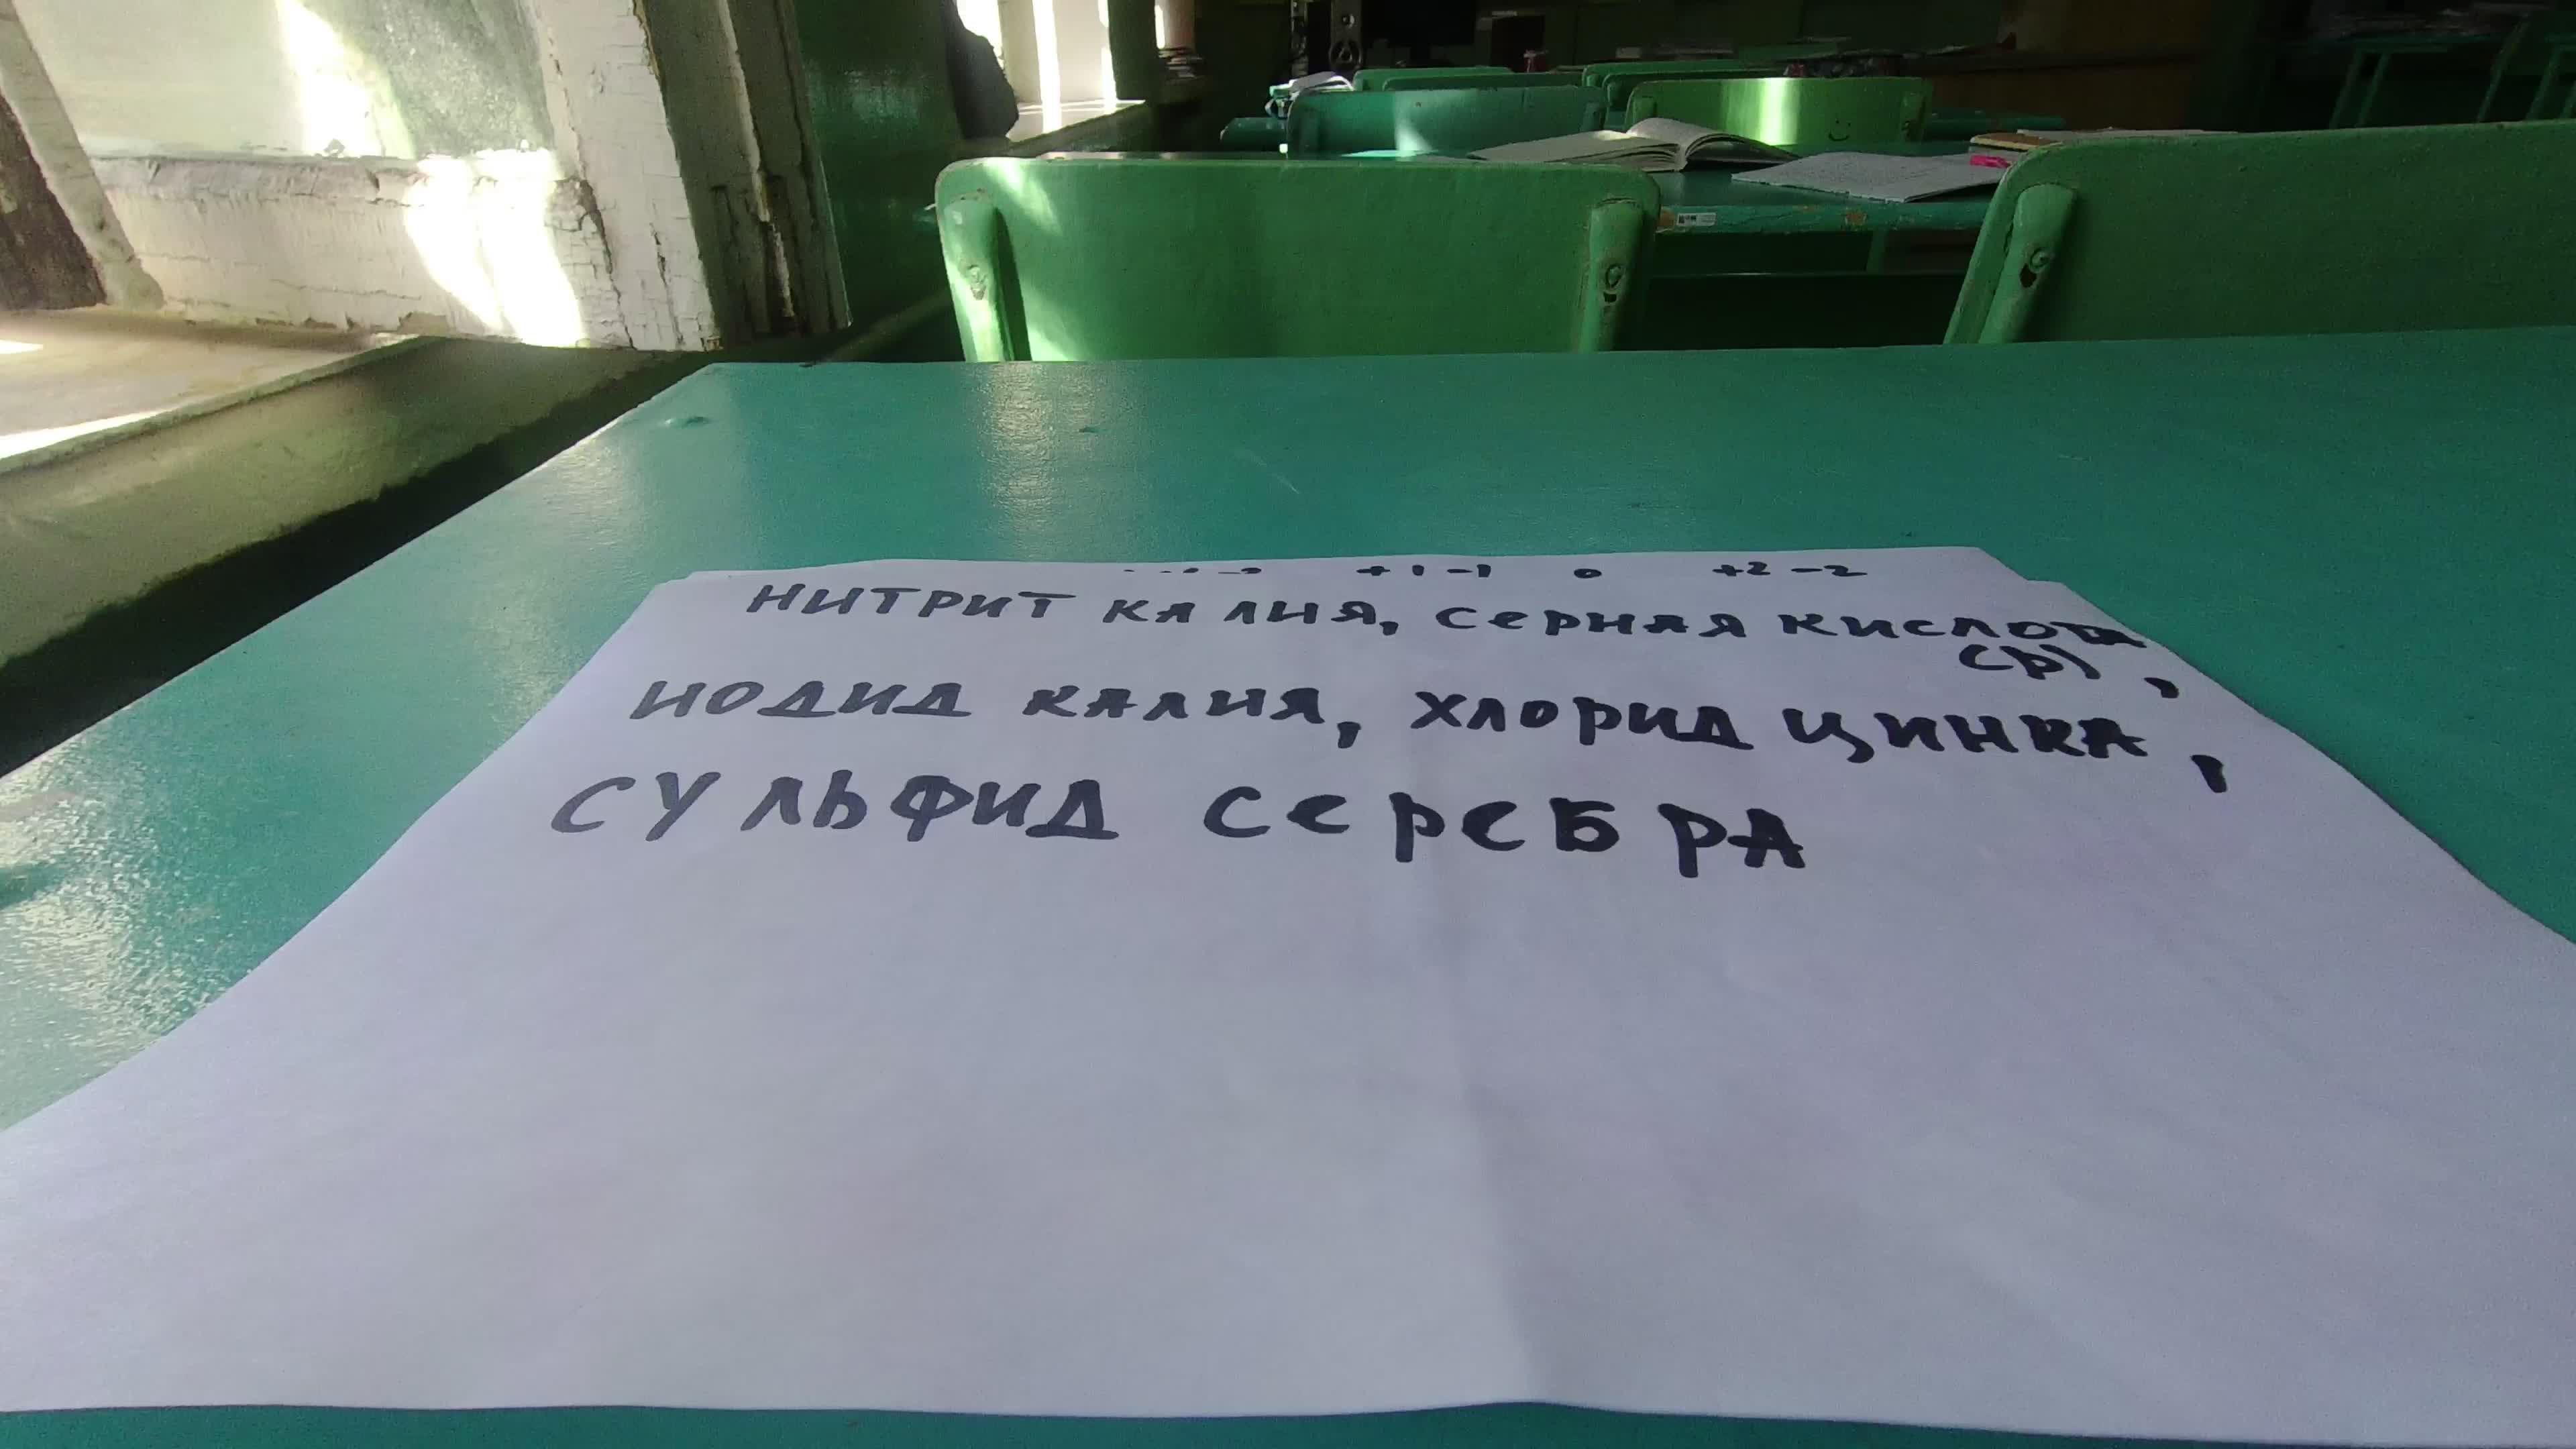 +1 -1 0 +2 -2
нитрит калия, серная кислота
(р),
иодид калия, хлорид цинка,
сульфид серебра